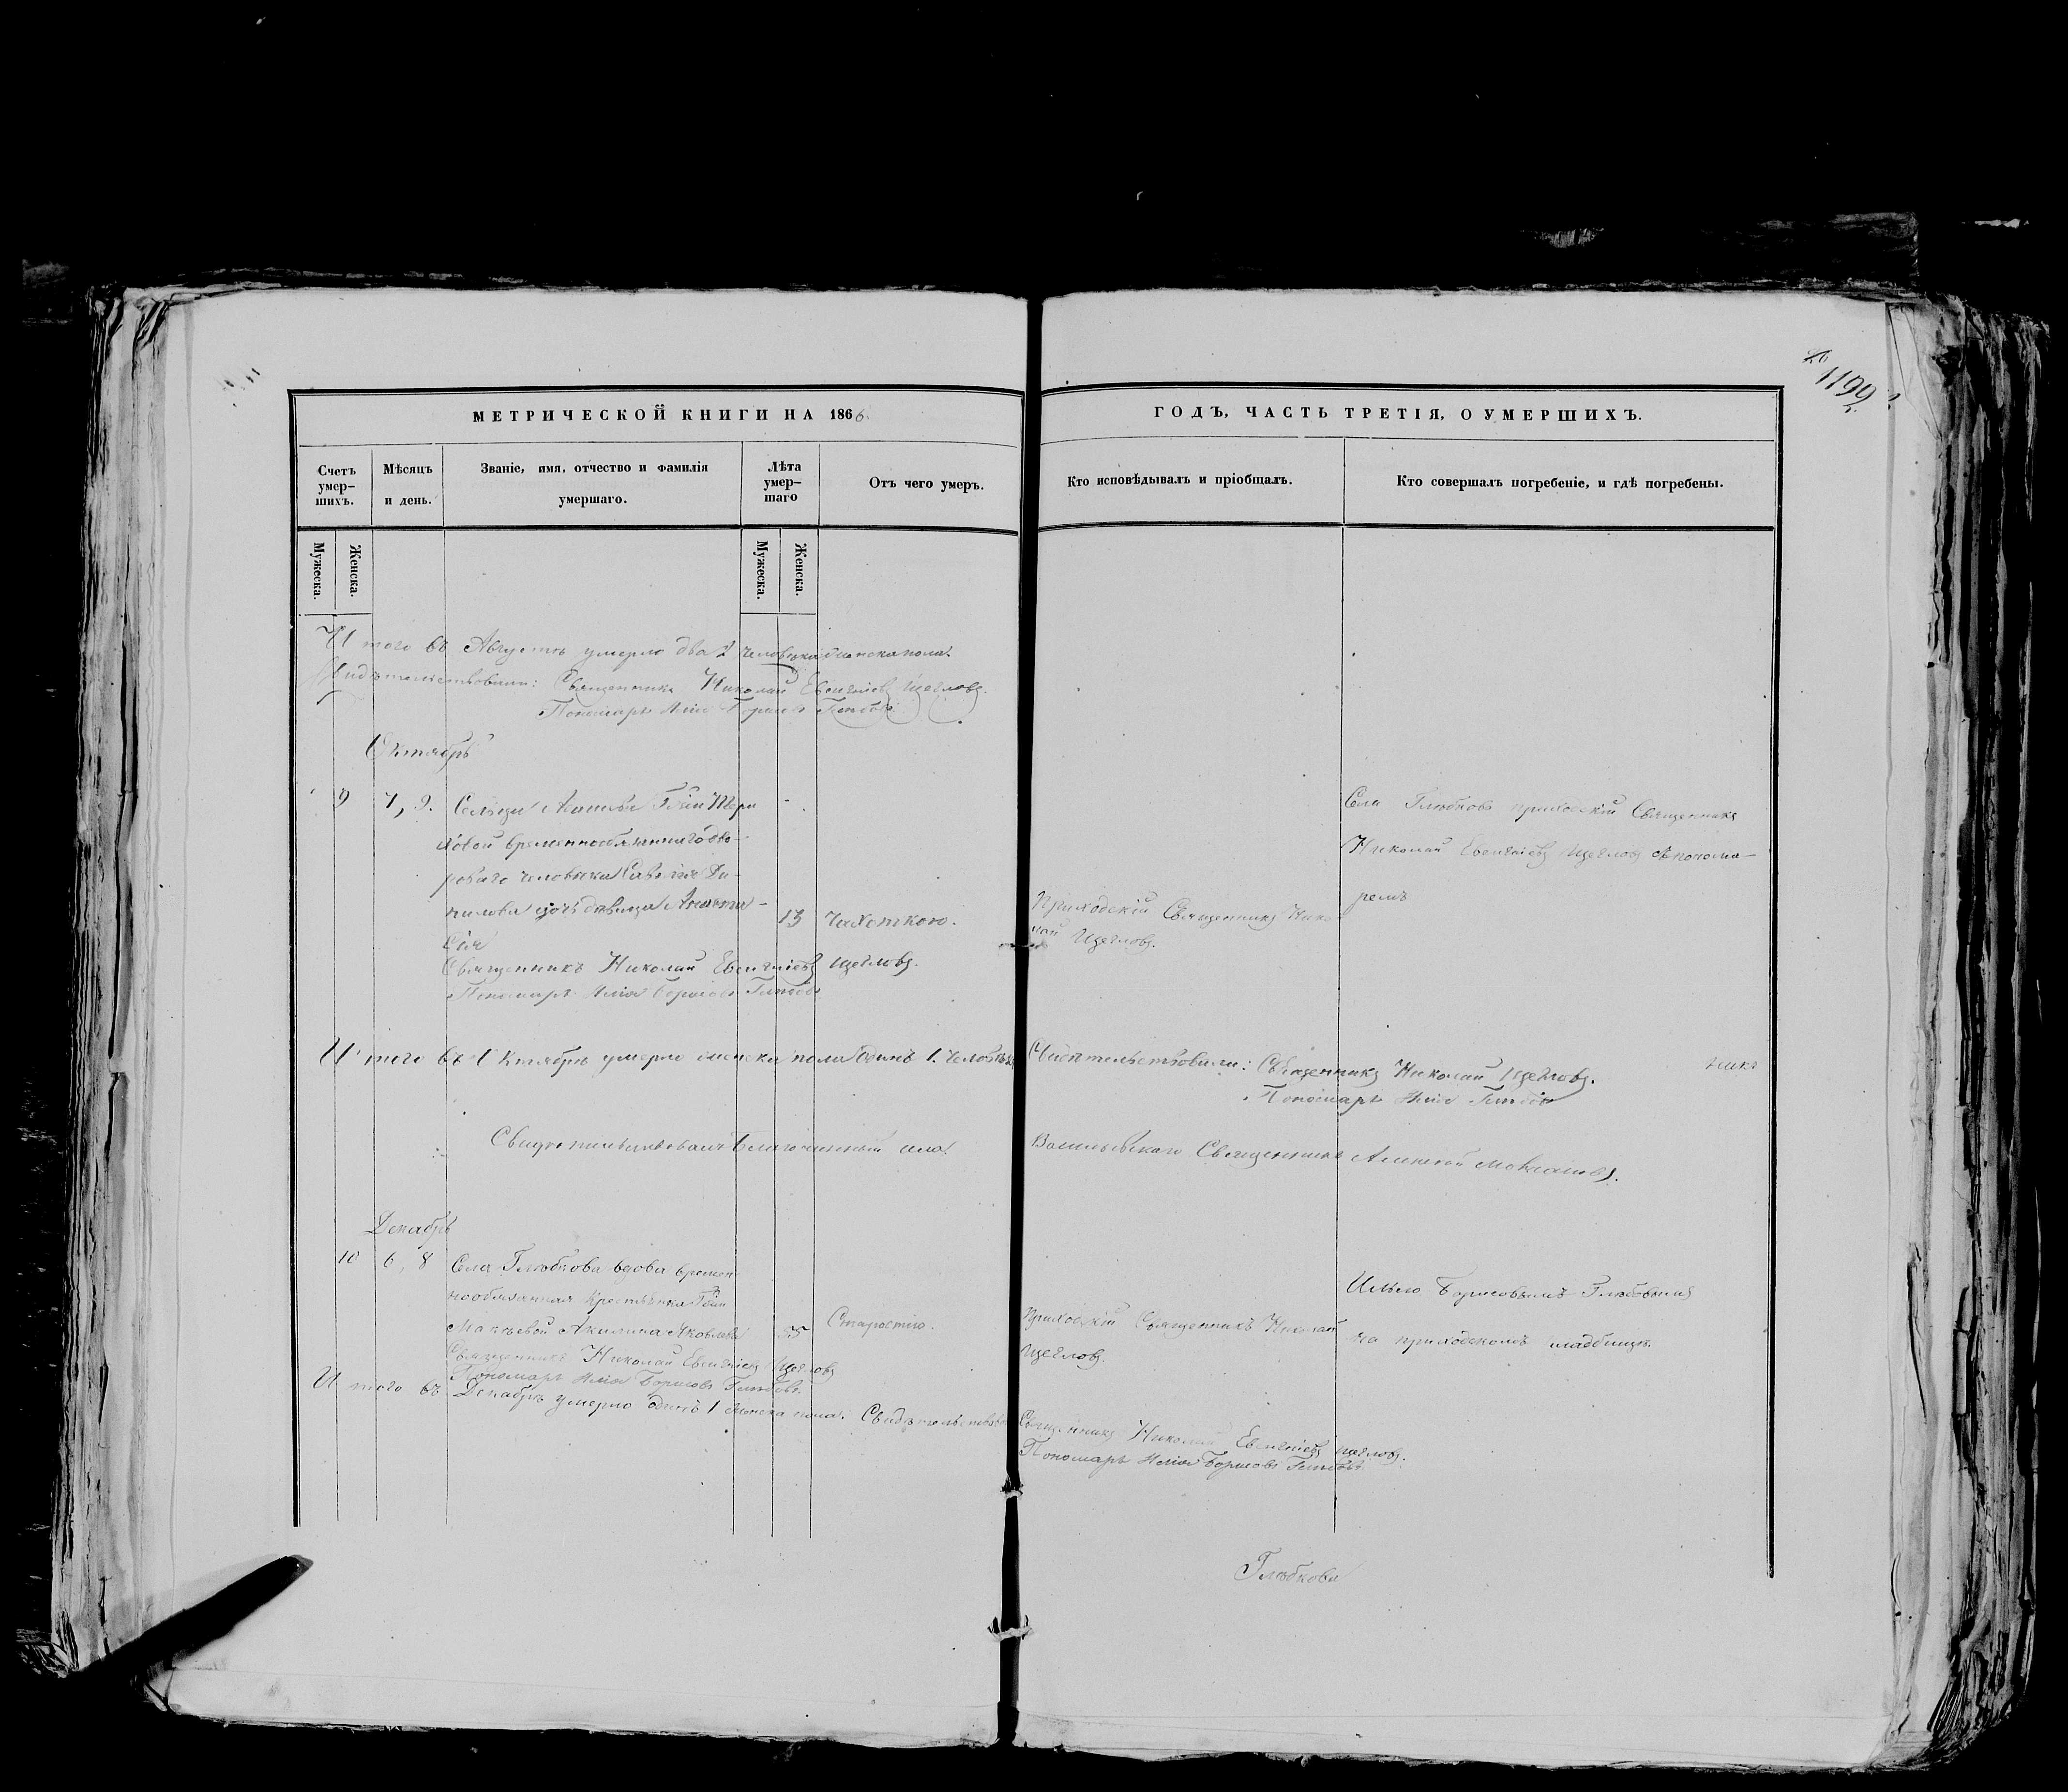 1199
МЕТРИЧЕСКОЙ КНИГИ НА 1866
ГОДЪ, ЧАСТЬ ТРЕТІЯ, О УМЕРШИХЪ.
Счетъ умер-шихъ.
Мѣсяцъ и день.
Званіе, имя, отчество и фамилія умершаго.
Лѣта умер-шаго
Отъ чего умеръ.
Кто исповѣдывалъ и пріобщалъ.
Кто совершалъ погребеніе, и гдѣ погребены.
Мужеска.
Женска.
Мужеска.
Женска.
И того въ Августѣ умерло два 2 человѣка женска пола.
Свидѣтельствовали: Священникъ Николай Евгеніевъ Щегловъ.
Пономарь Илія Борисовъ Глѣбовъ
Октябрь
9 7, 9. Сельца
временнообязаннаго дво-
роваго человѣка Савелія Да-
нилова дочь дѣвица Анаста-
сія
13 Чахоткою.
Приходскій Священникъ Нико
лай Щегловъ.
Села Глѣбкова приходскій Священникъ
Николай Евгеніевъ Щегловъ съ понома-
ремъ
Священникъ Николай Евгеніевъ Щегловъ.
Пономарь Илія Борисовъ Глѣбовъ
И того въ Октябрѣ умерло женска пола одинъ 1. человѣкъ
Свидѣтельствовали: Священникъ Николай Щегловъ.
Пономарь Илія Глѣбовъ
Свидѣтельствовалъ Благочинный села
Васильевскаго Священникъ Алексѣй
Декабрь
10 6, 8 Села Глѣбкова вдова времен
нообязанная крестьянка Гжи
Акилина Яковлева 55 Старостію.
Приходскій Священникъ Николай
Щегловъ.
Ильею Борисовымъ Глѣбовымъ
на приходскомъ кладбищѣ.
Священникъ Николай Евгеніевъ Щегловъ
Пономарь Илія Борисовъ Глѣбовъ.
И того въ Декабрѣ умерло одинъ 1 женска пола. Свидѣтельствовали
Священникъ Николай Евгеніевъ Щегловъ.
Пономарь Илія Борисовъ Глѣбовъ
Глѣбкова